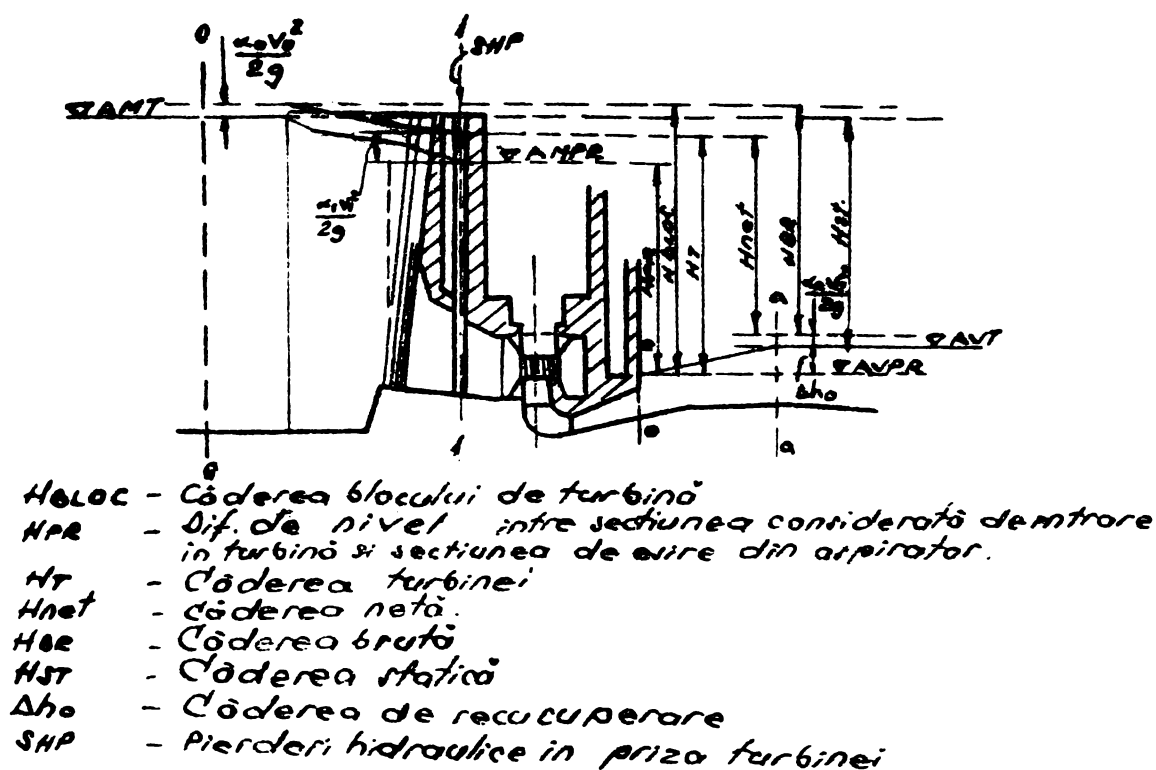 0
α₀V₀²
2g
1
SHP
▽AMT
▽AMPR
α₁V₁²
2g
HBLOC
HT
Hnet
HBR
Hst.
a
▽AVT
▽AVPR
Δho
e
0
1
e
a
HBLOC - Căderea blocului de turbină
HPR - Dif. de nivel intre sectiunea considerată de intrare
in turbină si sectiunea de esire din aspirator.
HT - Căderea turbinei
Hnet - Căderea netă.
HBR - Căderea brută
HST - Căderea statică
Δho - Căderea de recucuperare
SHP - Pierderi hidraulice in priza turbinei